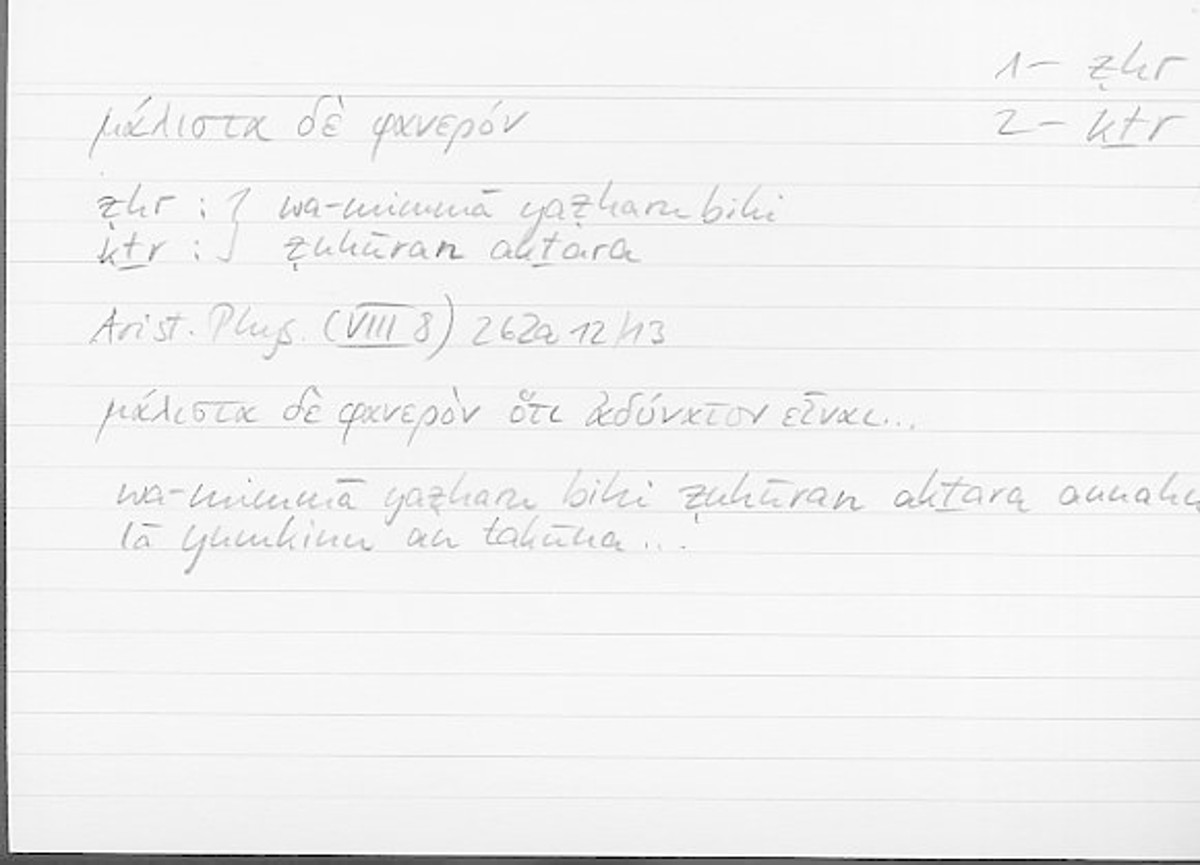 1 - ẓhr
μάλιστα δὲ φανερόν
2 - kṯr
ẓhr : } wa-mimmā yaẓharu bihi
kṯr : } ẓuhūran akṯara
Arist. Phys. (VIII 8) 262a 12/13
μάλιστα δὲ φανερὸν ὅτι ἀδύνατον εἶναι...
wa-mimmā yaẓharu bihi ẓuhūran akṯara annahu
lā yumkinu an takūna...